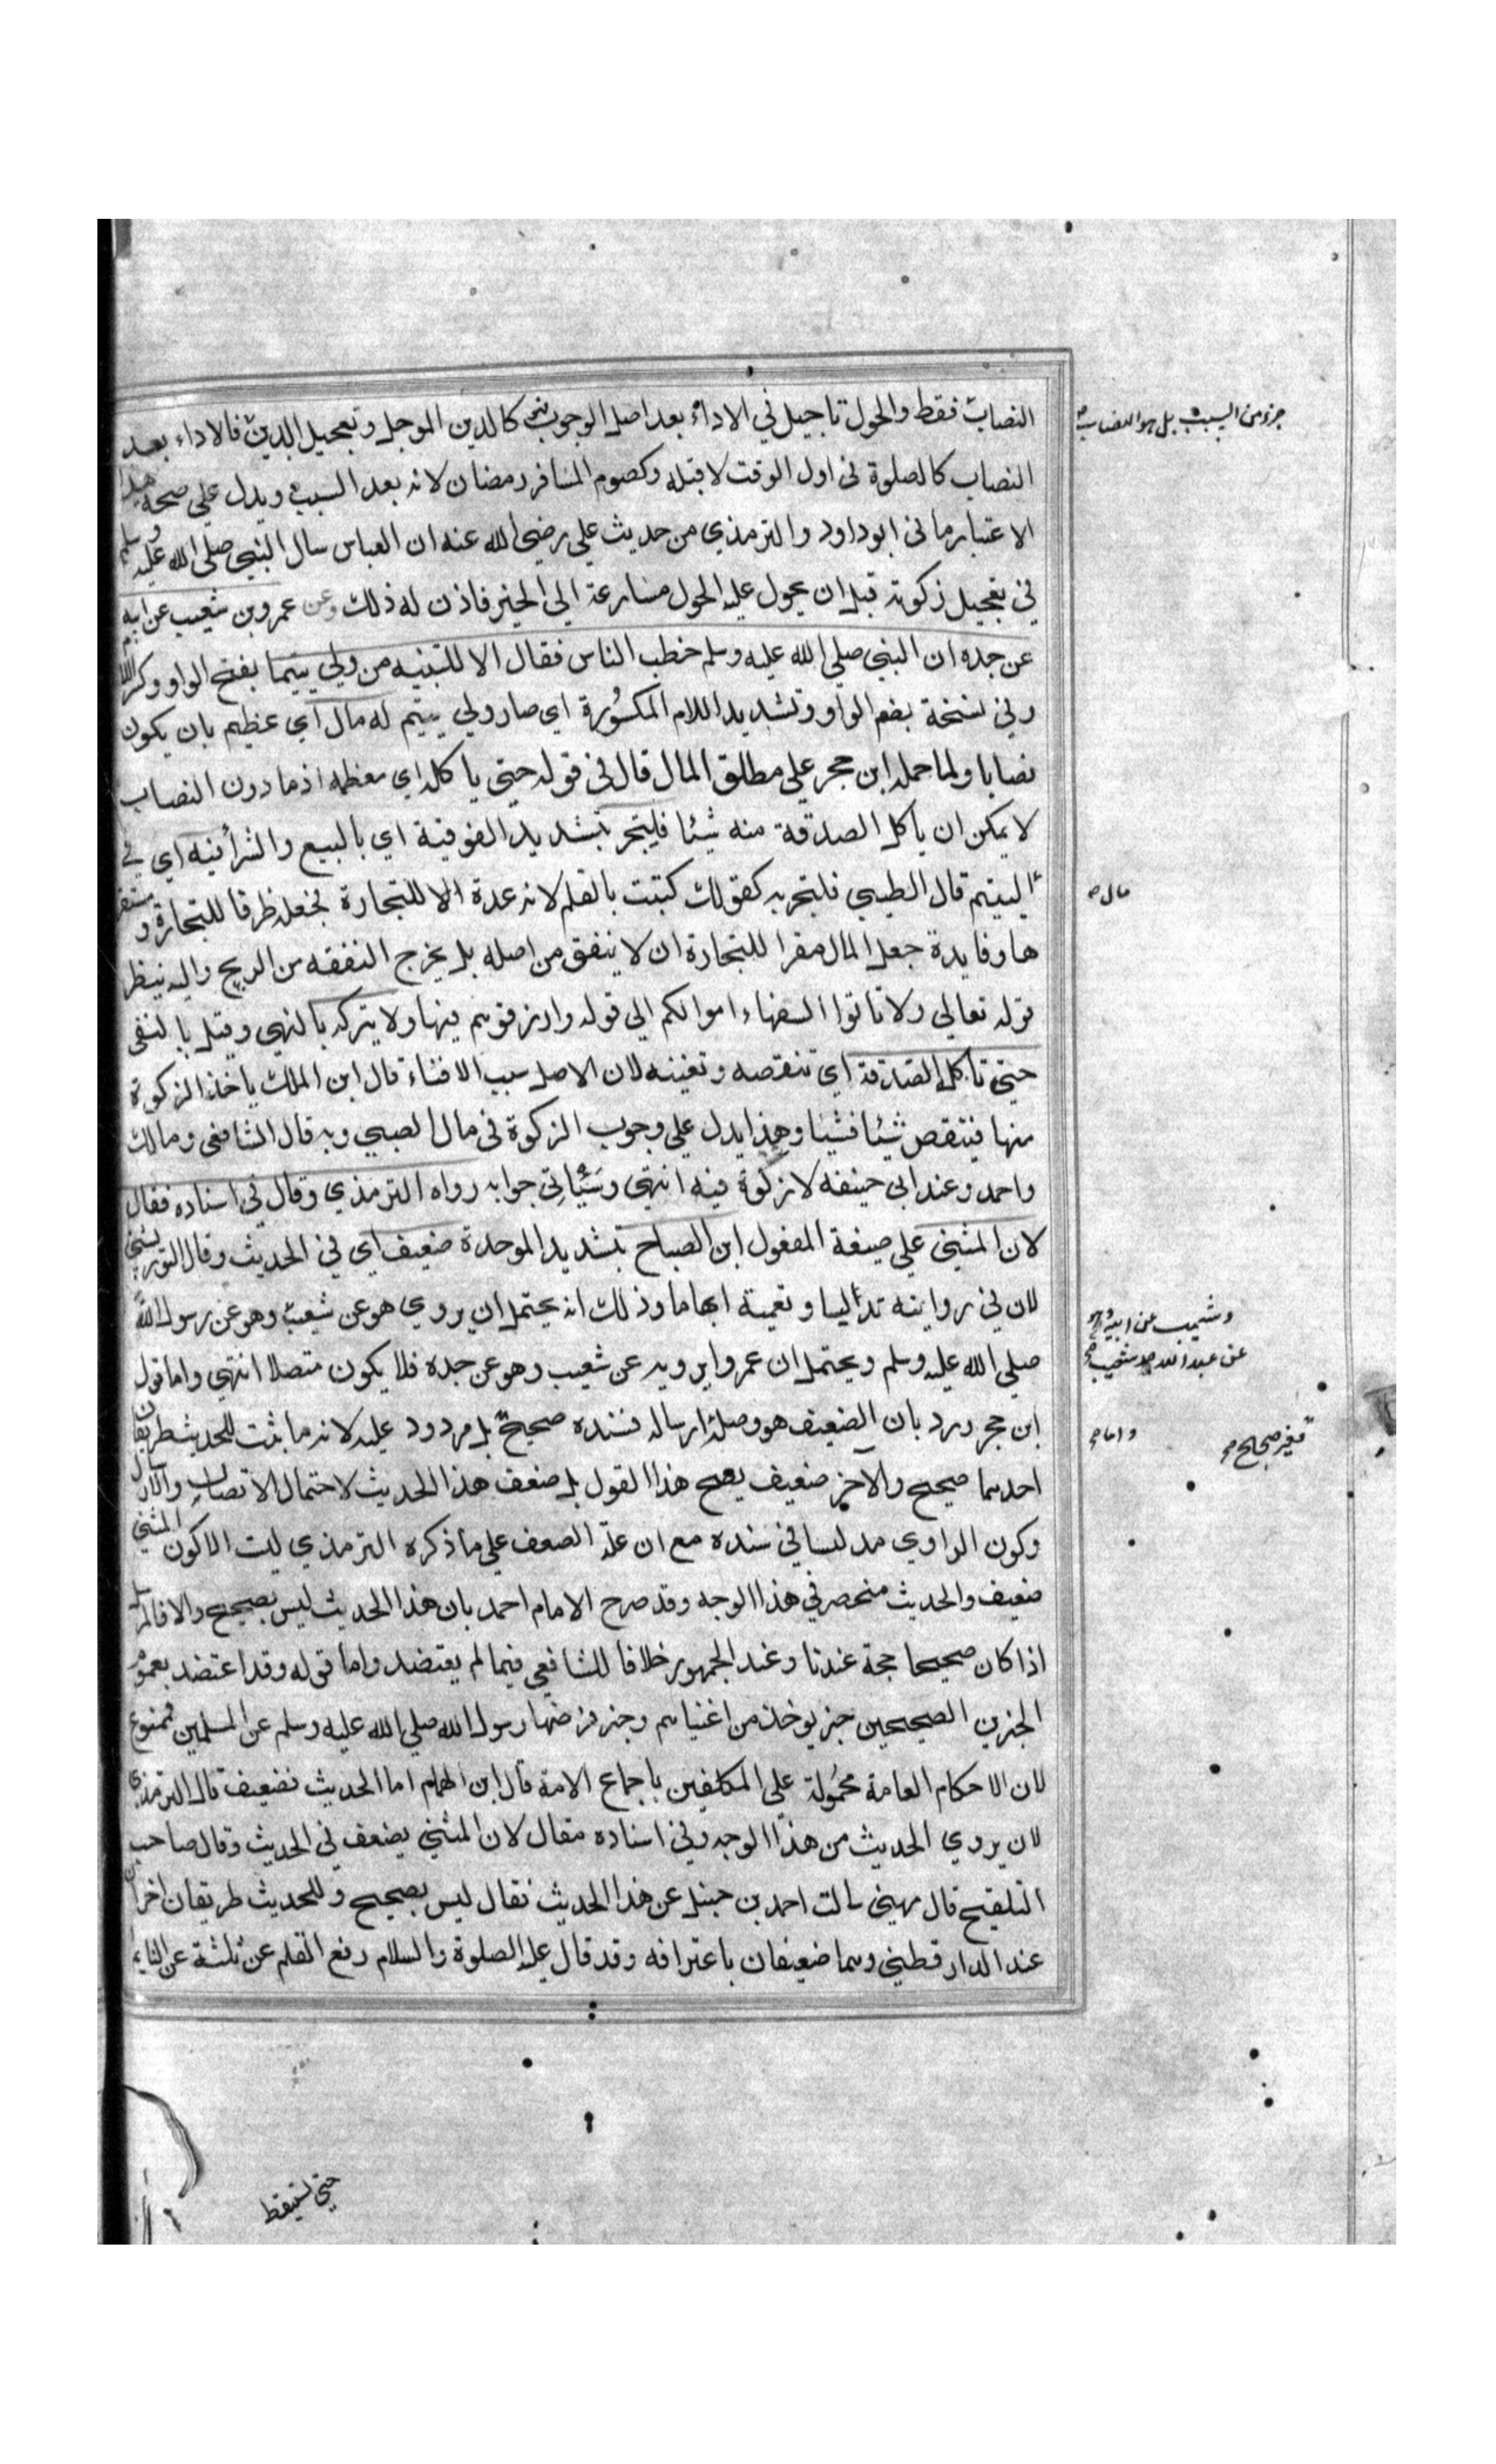 النصاب فقط والحول تاجيل في الاداء بعد اصل الوجوب فهي كالدين الموجل وتعجيل الدين فالاداء بعد
النصاب كالصلوة في اول الوقت لا قبله وكصوم المسافر رمضان لانه بعد السبب ويدل على صحة هذا
الاعتبار ما في ابو داود والترمذي من حديث علي رضي الله عنه ان العباس سال النبي صلى الله عليه وسلم
في تعجيل زكوته قبل ان يحول عليه الحول مسارعة الى الخير فاذن له ذلك وعن عمرو بن شعيب عن ابيه
عن جده ان النبي صلى الله عليه وسلم خطب الناس فقال الا للتنبيه من ولي يتيما بفتح الواو وكسر اللام
وفي نسخة بضم الواو وتشديد اللام المكسورة اي صار ولي يتيم له مال اي عظيم بان يكون
نصابا ولما حمله ابن حجر على مطلق المال قال في قوله حتى ياكله اي معظمه اذ ما دون النصاب
لا يمكن ان ياكل الصدقة منه شيئا فليتجر بتشديد الفوقية اي بالبيع والشرأ فيه اي في
اليتيم قال الطيبي فليتجر به كقولك كتبت بالقلم لانه عدة الا للتجارة فجعل ظرفا للتجارة ومستقر
ها وفايدة جعل المال مقرا للتجارة ان لا ينفق من اصله بل يخرج النفقه من الربح واليه ينظر
قوله تعالى ولا تاتوا السفهاء اموالكم الى قوله وارزقوهم فيها ولا يتركه بالنهي وقيل بالنفي
حتى تاكله الصدقة اي تنقصه وتفنيه لان الاصل سبب الافناء قال ابن الملك ياخذ الزكوة
منها فينقص شيئا فشيئا وهذا يدل على وجوب الزكوة في مال الصبي وبه قال الشافعي ومالك
واحمد وعند ابي حنيفه لا زكوة فيه انتهى وسيأتي جوابه رواه الترمذي وقال في اسناده فقال
لان المثنى على صيغة المفعول ابن الصباح بتشديد الموحدة ضعيف اي في الحديث وقال التوربشتي
لان في روايته تدليسا وتعمية ابهاما وذلك انه يحتمل ان يروي هو عن شعيب وهو عن رسول الله
صلى الله عليه وسلم ويحتمل ان عمروا يرويه عن شعيب وهو عن جده فلا يكون متصلا انتهى واما قول
ابن حجر ورد بان الضعيف هو وصله ارساله فسنده صحيح بل مردود عليه لانه ما ثبت للحديث طريقان
احدهما صحيح والاخر ضعيف يصح هذا القول بل ضعف هذا الحديث لاحتمال الاتصال والارسال
وكون الراوي مدلسا في سنده مع ان علة الضعف على ما ذكره الترمذي ليت الا كون المثنى
ضعيف والحديث منحصر في هذا الوجه وقد صرح الامام احمد بان هذا الحديث ليس بصحيح والا فالمرسل
اذا كان صحيحا حجة عندنا وعند الجمهور خلافا للشافعي فيما لم يعتضد واما قوله وقد اعتضد بعموم
الخبرين الصحيحين خبر يوخذ من اغنيائهم وخبر فرضها رسول الله صلى الله عليه وسلم عن المسلمين فممنوع
لان الاحكام العامة محمولة على المكلفين باجماع الامة قال ابن الهمام اما الحديث فضعيف قال الترمذي
لان يروي الحديث من هذا الوجه وفي اسناده مقال لان المثنى يضعف في الحديث وقال صاحب
التلقيح قال مهنى سالت احمد بن حنبل عن هذا الحديث فقال ليس بصحيح وللحديث طريقان اخران
عند الدارقطني وهما ضعيفان باعترافه وقد قال عليه الصلوة والسلام رفع القلم عن ثلثة عن النايم
حتى يستيقظ
جزء من السبب بل هو النصاب
مال
وشعيب عن ابيه
عن عبد الله جد شعيب
واما
فغير صحيح